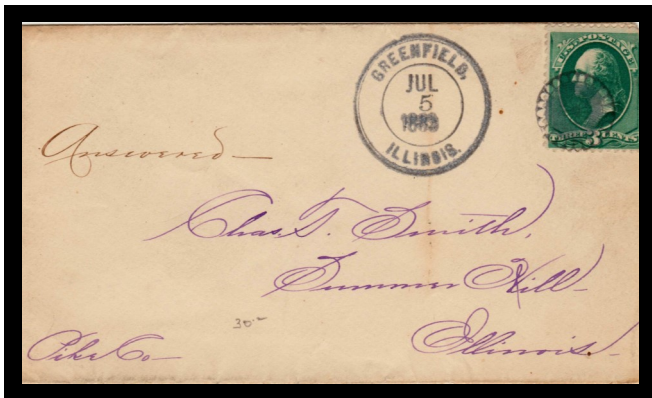 GREENFIELD,
JUL
5
1883
ILLINOIS.
U.S. POSTAGE
THREE 3 CENTS
Answered —
Chas. T. Smith,
Summer Hill —
30.—
Pike Co —
Illinois —